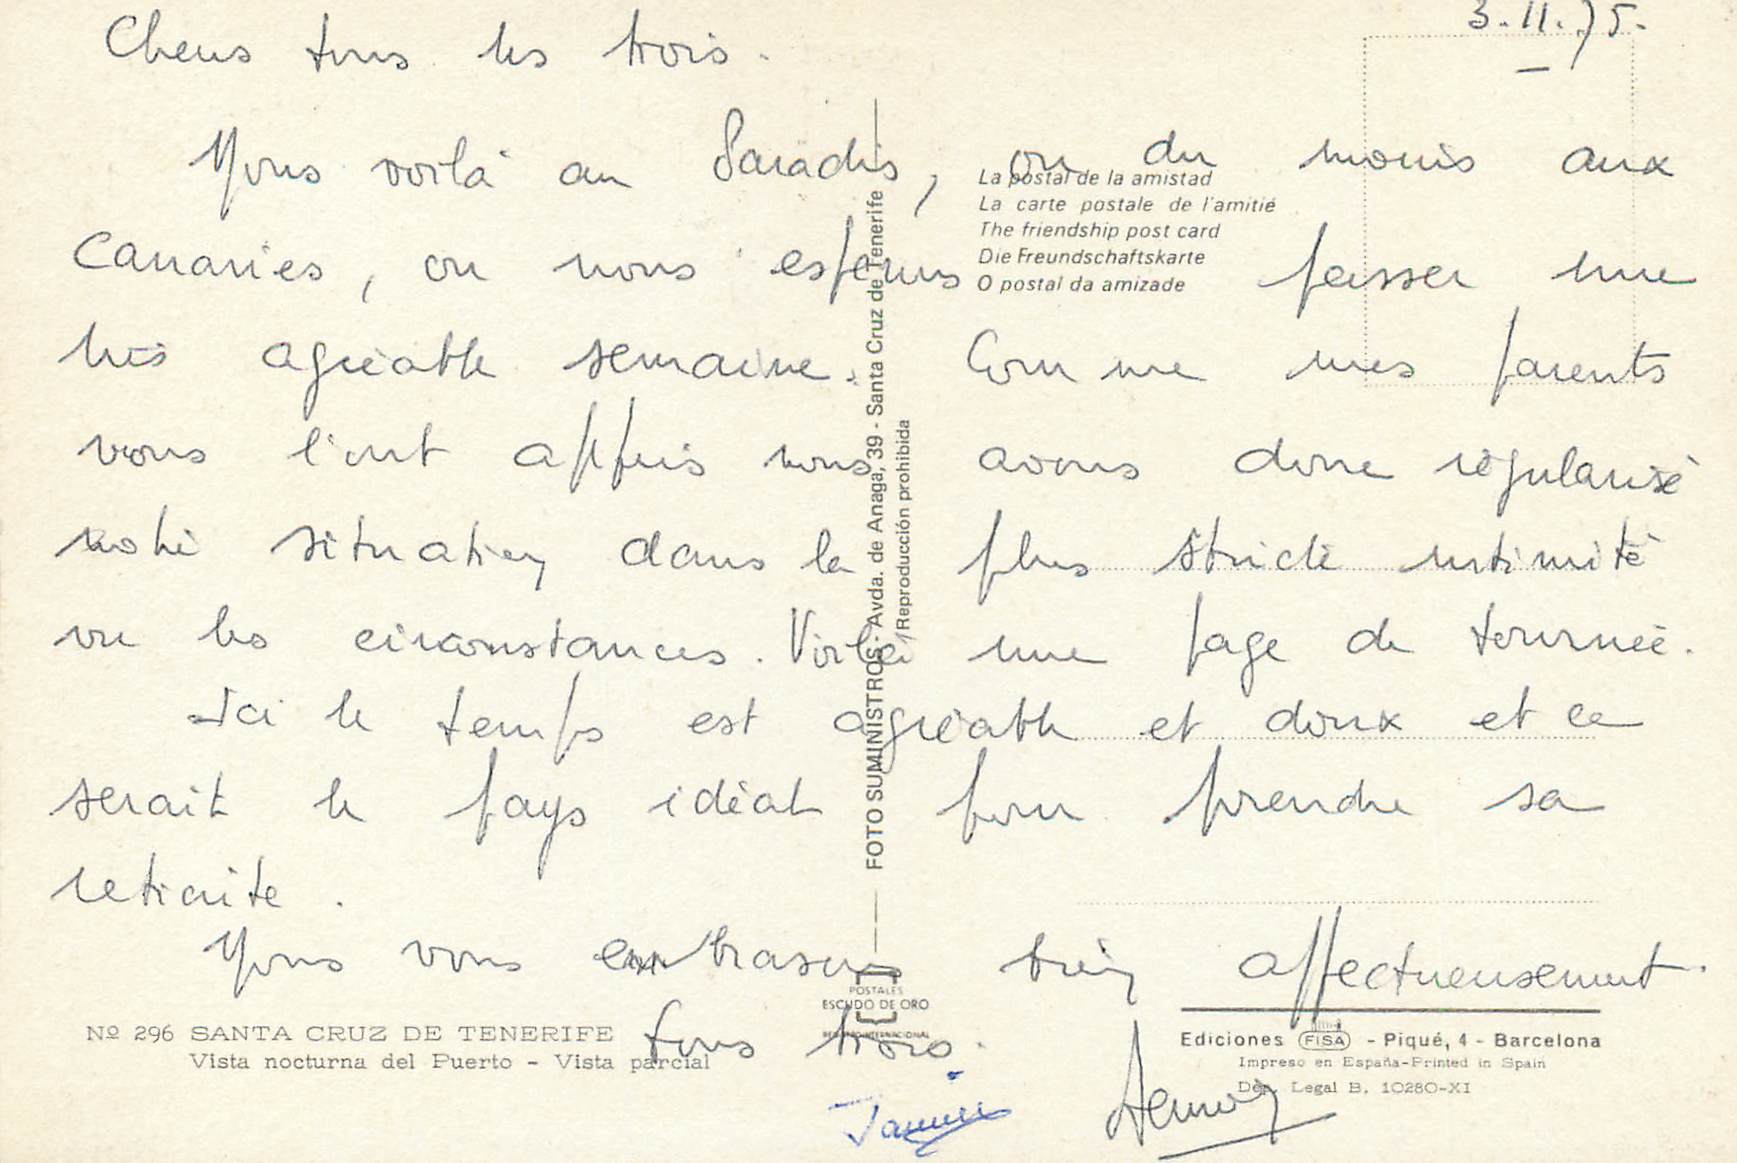 3.II.75.
Chers tous les trois.
Nous voilà au Paradis, ou du moins aux
Canaries, où nous espérons passer une
très agréable semaine. Comme mes parents
vous l'ont appris nous avons donc régularisé
notre situation dans la plus stricte intimité
vu les circonstances. Voilà une page de tournée.
Ici le temps est agréable et doux et ce
serait le pays idéal pour prendre sa
retraite.
Nous vous embrassons bien affectueusement
tous trois.
Janine
La postal de la amistad
La carte postale de l'amitié
The friendship post card
Die Freundschaftskarte
O postal da amizade
FOTO SUMINISTROS - Avda. de Anaga, 39 - Santa Cruz de Tenerife
Reproducción prohibida
POSTALES
ESCUDO DE ORO
REGISTRO INTERNACIONAL
Nº 296 SANTA CRUZ DE TENERIFE
Vista nocturna del Puerto - Vista parcial
Ediciones FISA - Piqué, 4 - Barcelona
Impreso en España-Printed in Spain
Dep. Legal B. 10280-XI